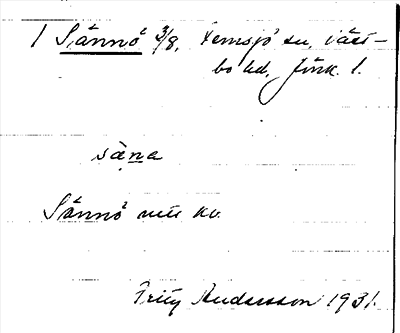 1 Sånnö 3/8, Femsjö sn, Väst-
bo hd, Jönk. l.
sàna
Sånnö
Fritz Andersson 1931.